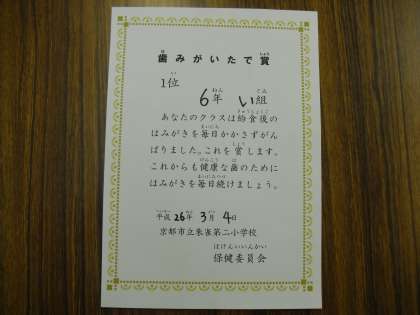 歯みがいたで賞
1位
6年 い組
あなたのクラスは給食後の
はみがきを毎日かかさずがん
ばりました。これを賞します。
これからも健康な歯のために
はみがきを毎日続けましょう。
平成26年3月4日
京都市立朱雀第二小学校
保健委員会